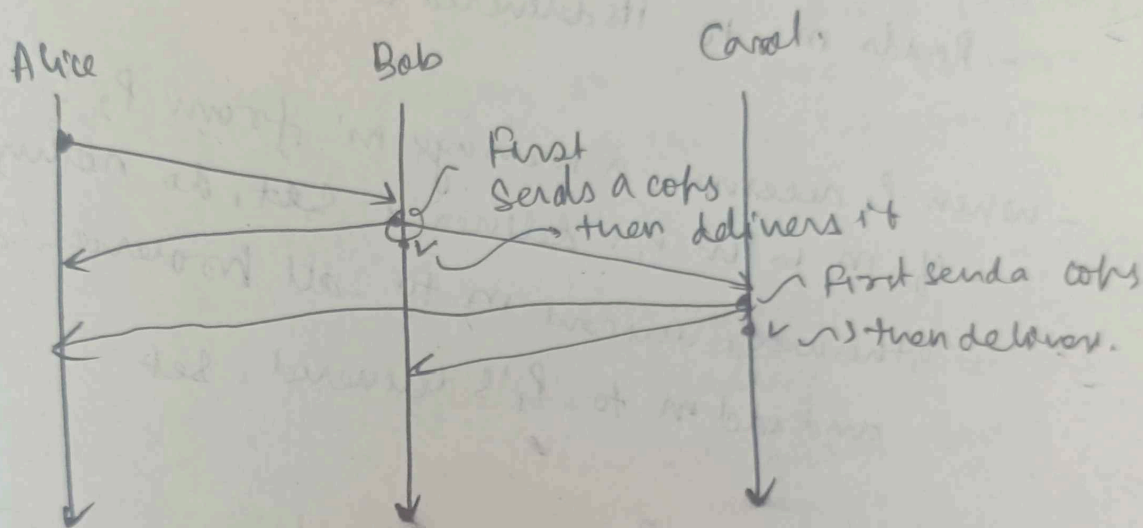 Alice
Bob
Carol.
First
sends a copy
then delivers it
first send a copy
then deliver.